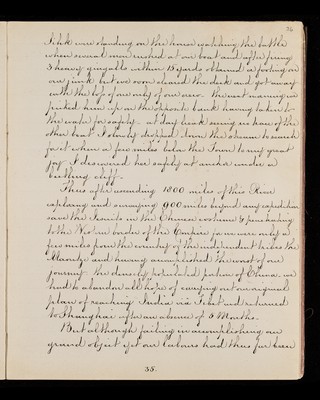 36
Silok were standing on the house watching the battle
when several men rushed at our boat and after firing
3 heavy gingalls within 15 yards obtained a footing on
our junk but we soon cleared the deck and got away
with the loss of one only of our crew. the next morning we
picked him up on the opposite bank having taken to
the water for safety. at day break seeing no trace of the
other boat I slowly dropped down the stream to search
for it when a few miles below the Town to my great
joy I discovered her safely at anchor under a
beetling cliff.
Thus after ascending 1800 miles of this River
exploring and surveying 900 miles beyond any expedition
save the Jesuits in the Chinese costume & penetrating
to the Western border of the Empire for we were only a
few miles from the country of the independent tribes the
Miaoutze and having accomplished the worst of our
journey the densely populated portion of China we
had to abandon all hope of carrying out our original
plans of reaching India via Tibet and returned
to Shanghai after an absence of 5 Months.
But although failing in accomplishing our
grand object yet our labours had thus far been
35.